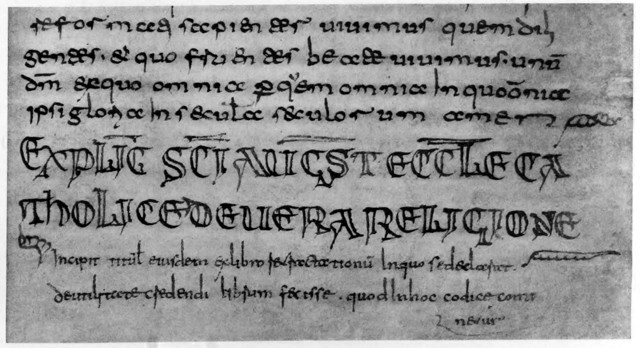 sapientes uiuimus quem dili
gentes. & quo fruentes beate uiuimus. unū
dm̄ ex quo omnia p quem omnia In quo om̄ia
ipsi gloria In secula seculorum amen
EXPLIC̄ SC̄I AUGUST ECCLE CA
THOLICE DE UERA RELIGIONE
Incipit titul eiusdem ex libro retractationū In quo se declarat.
de utilitate credendi librum fecisse. quod In hoc codice conti
netur